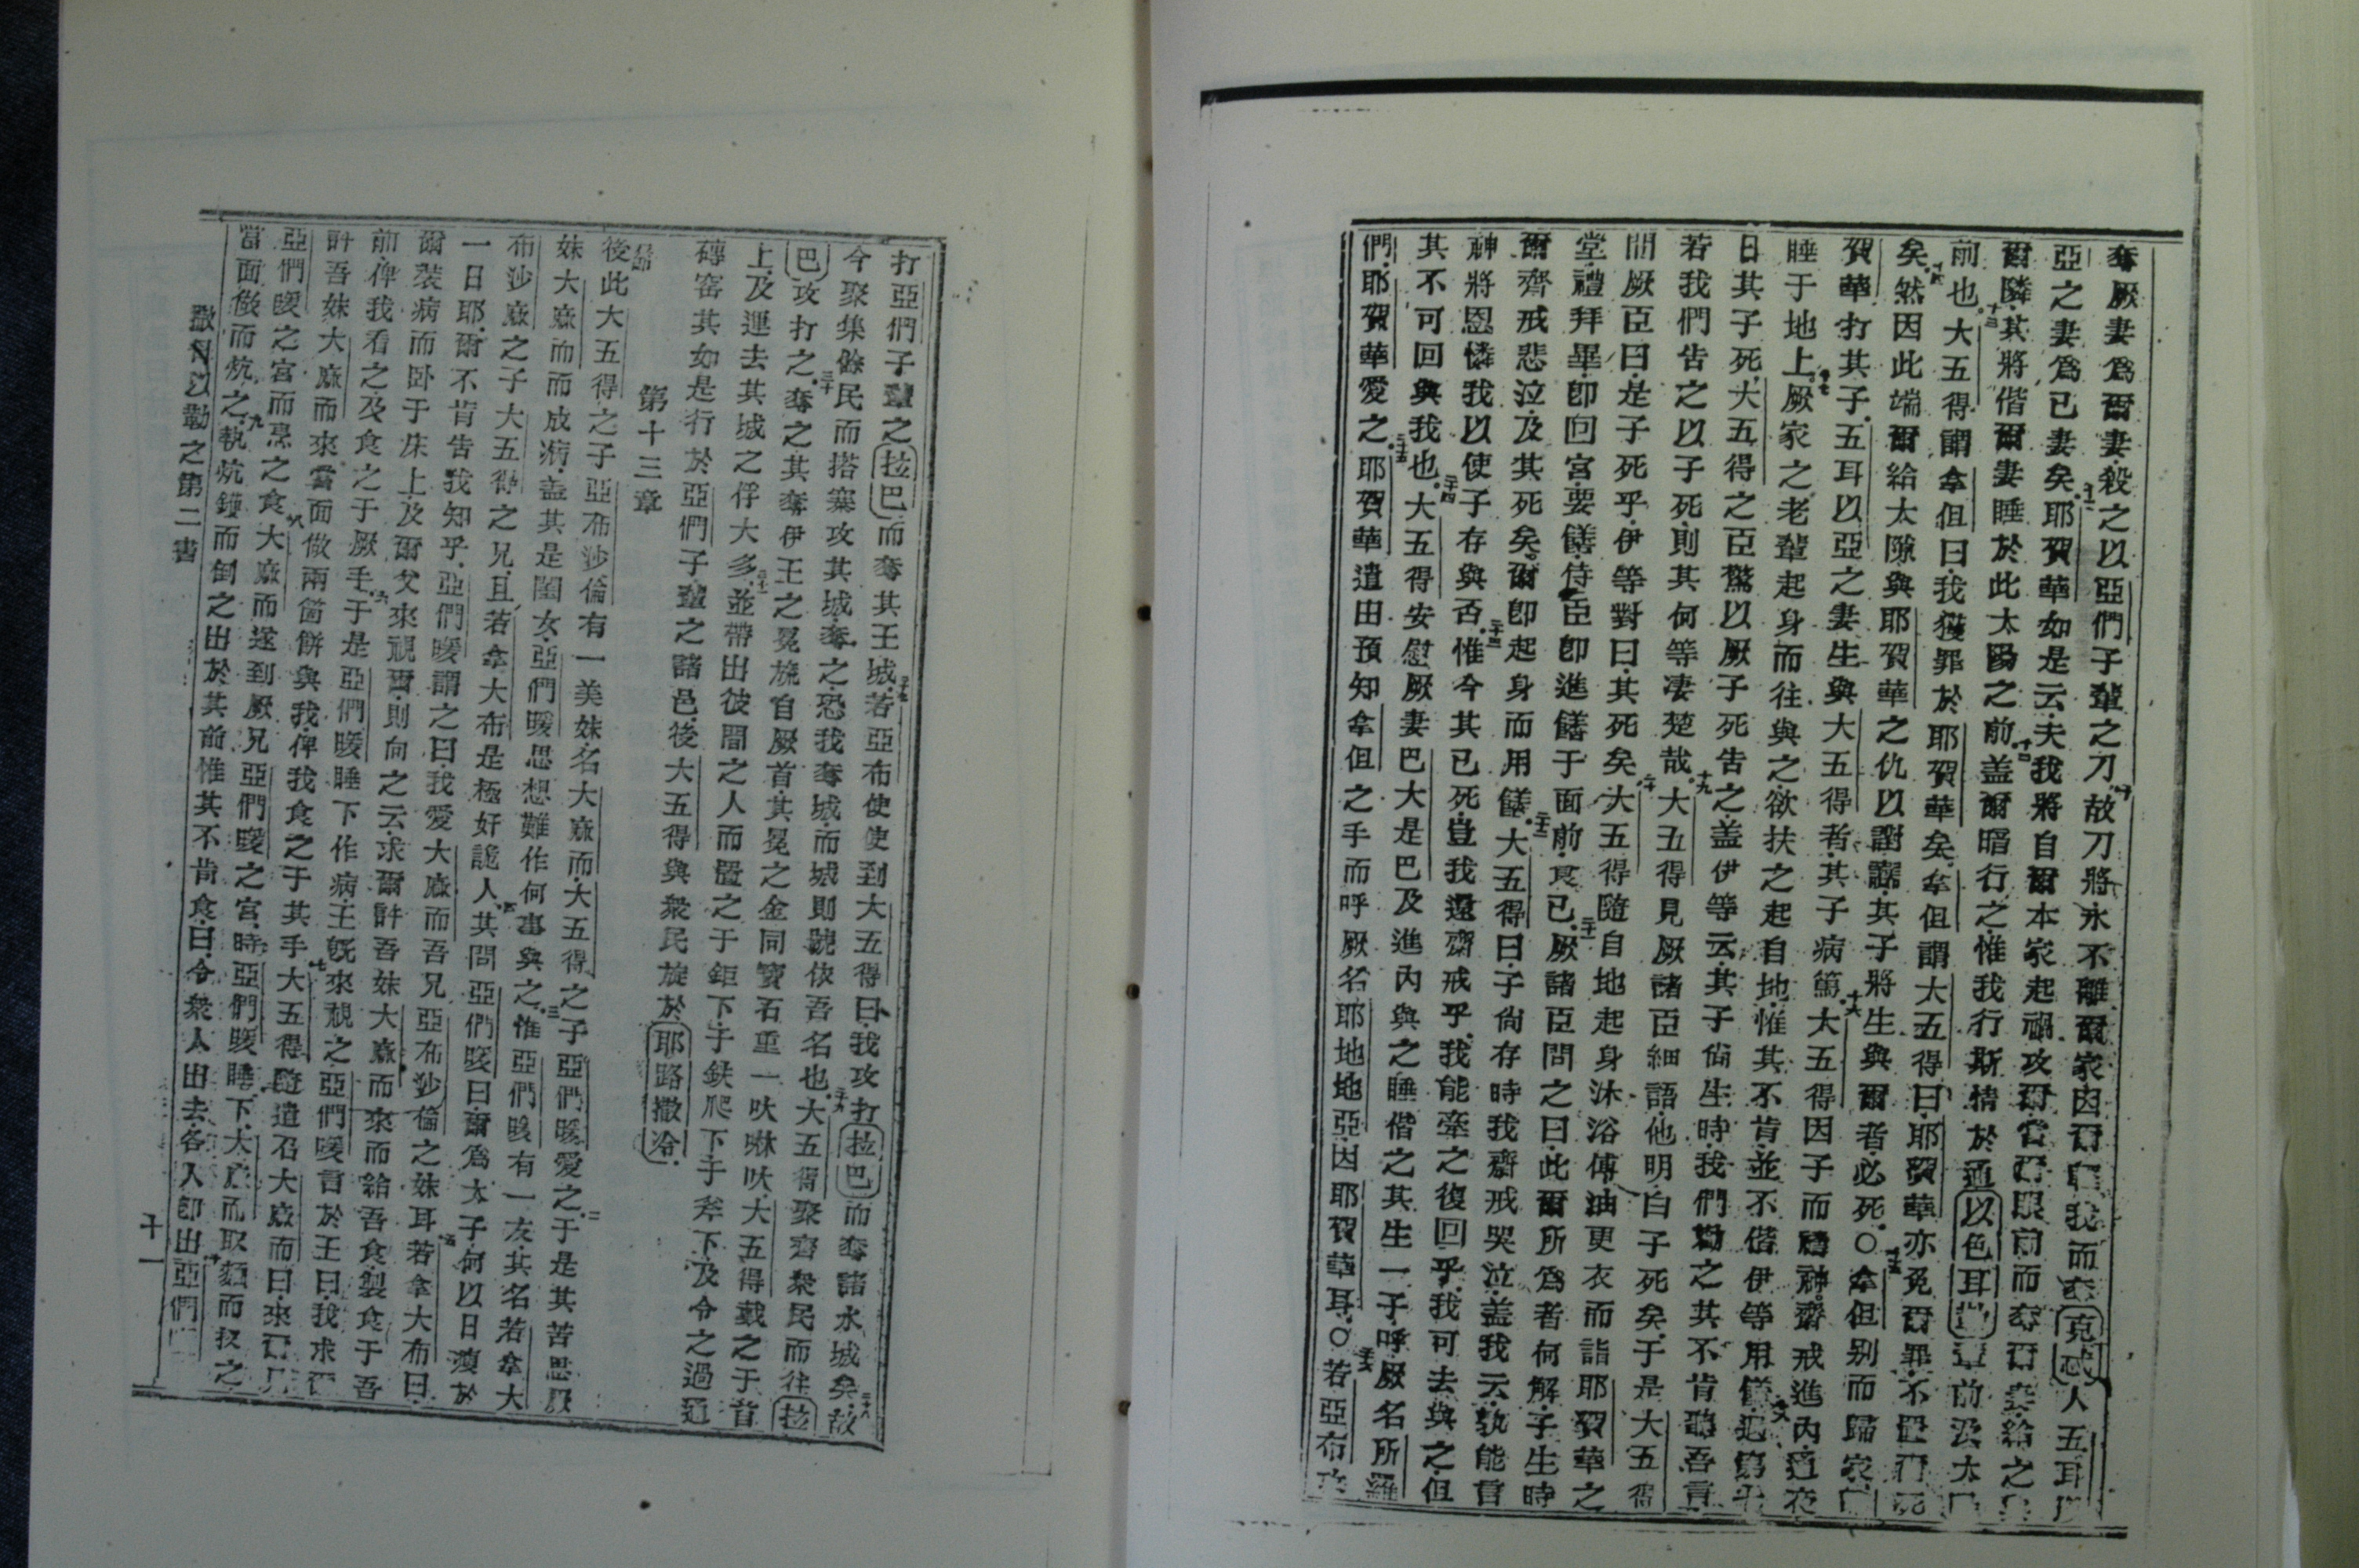 奪厥妻爲爾妻殺之以亞們子輩之刀十故刀將永不離爾家因爾輕我而奪克咗人五耳以
亞之妻爲已妻矣十一耶賀華如是云夫我將自爾本家起禍攻爾當爾眼前而奪爾妻給之與
爾隣其將偕爾妻睡於此太陽之前十二盖爾暗行之惟我行斯情於通以色耳
前也十三大五得謂拿但曰我獲罪於耶賀華矣拿但謂大五得曰耶賀華亦免爾罪不
矣十四然因此端爾給太隙與耶賀華之仇以謝謡其子將生與爾者必死○十五拿但别而歸家
賀華打其子五耳以亞之妻生與大五得者其子病篤十六大五得因子而禱神齋戒進內
睡于地上十七厥家之老輩起身而往與之欲扶之起自地惟其不肯並不偕伊等用饍十八
日其子死大五得之臣驚以厥子死告之盖伊等云其子尙生時我們勸之其不肯聽吾言
若我們告之以子死則其何等凄楚哉十九大五得見厥諸臣細語他明白子死矣于是大五得
問厥臣曰是子死乎伊等對曰其死矣二十大五得隨自地起身沐浴傅油更衣而詣耶賀華之
堂禮拜畢卽回宮要饍侍臣卽進饍于面前食已二十一厥諸臣問之曰此爾所爲者何解子生時
爾齊戒悲泣及其死矣爾卽起身而用饍二十二大五得曰子尙存時我齋戒哭泣盖我云孰能言
神將恩憐我以使子存與否二十三惟今其已死豈我還齋戒乎我能牽之復回乎我可去與之但
其不可回與我也二十四大五得安慰厥妻巴大是巴及進內與之睡偕之其生一子呼厥名所羅
們耶賀華愛之二十五耶賀華遣由預知拿但之手而呼厥名耶地地亞因耶賀華耳○二十六若亞布攻
打亞們子輩之拉巴而奪其王城二十七若亞布使使到大五得曰我攻打拉巴而奪諸水城矣二十八故
今聚集餘民而搭寨攻其城奪之恐我奪城而城則號依吾名也二十九大五得聚齊衆民而往拉
巴攻打之三十奪之其奪伊王之冕旒自厥首其冕之金同寶石重一吠啉吠大五得戴之于首
上及運去其城之俘大多三十一並帶出彼間之人而置之于鉅下于鉄爬下于斧下及令之過通
磚窑其如是行於亞們子輩之諸邑後大五得與衆民旋於耶路撒冷
歸
第十三章
後此大五得之子亞布沙倫有一美妹名大麻而大五得之子亞們暖愛之二于是其苦思厥
妹大麻而而成病盖其是閨女亞們暖思想難作何事與之三惟亞們暖有一友其名若拿大
布沙麻之子大五得之兄且若拿大布是極奸詭人四其問亞們暖曰爾爲太子何以日瘦於
一日耶爾不肯告我知乎亞們暖謂之曰我愛大麻而吾兄亞布沙倫之妹耳五若拿大布曰
爾裝病而卧于床上及爾父來視爾則向之云求爾許吾妹大麻而來而給吾食製食于吾
前俾我看之及食之于厥手六于是亞們暖睡下作病王旣來視之亞們暖言於王曰我求爾
許吾妹大麻而來當面做兩箇餅與我俾我食之于其手七大五得隨遣召大麻而曰來爾兄
亞們暖之宮而烹之食八大麻而遂到厥兄亞們暖之宮時亞們暖睡下大麻而取麵而扠之
當面做而炕之九執炕鐘而倒之出於其前惟其不肯食曰令衆人出去各人卽出十亞們
撒母以勒之第二書
十一